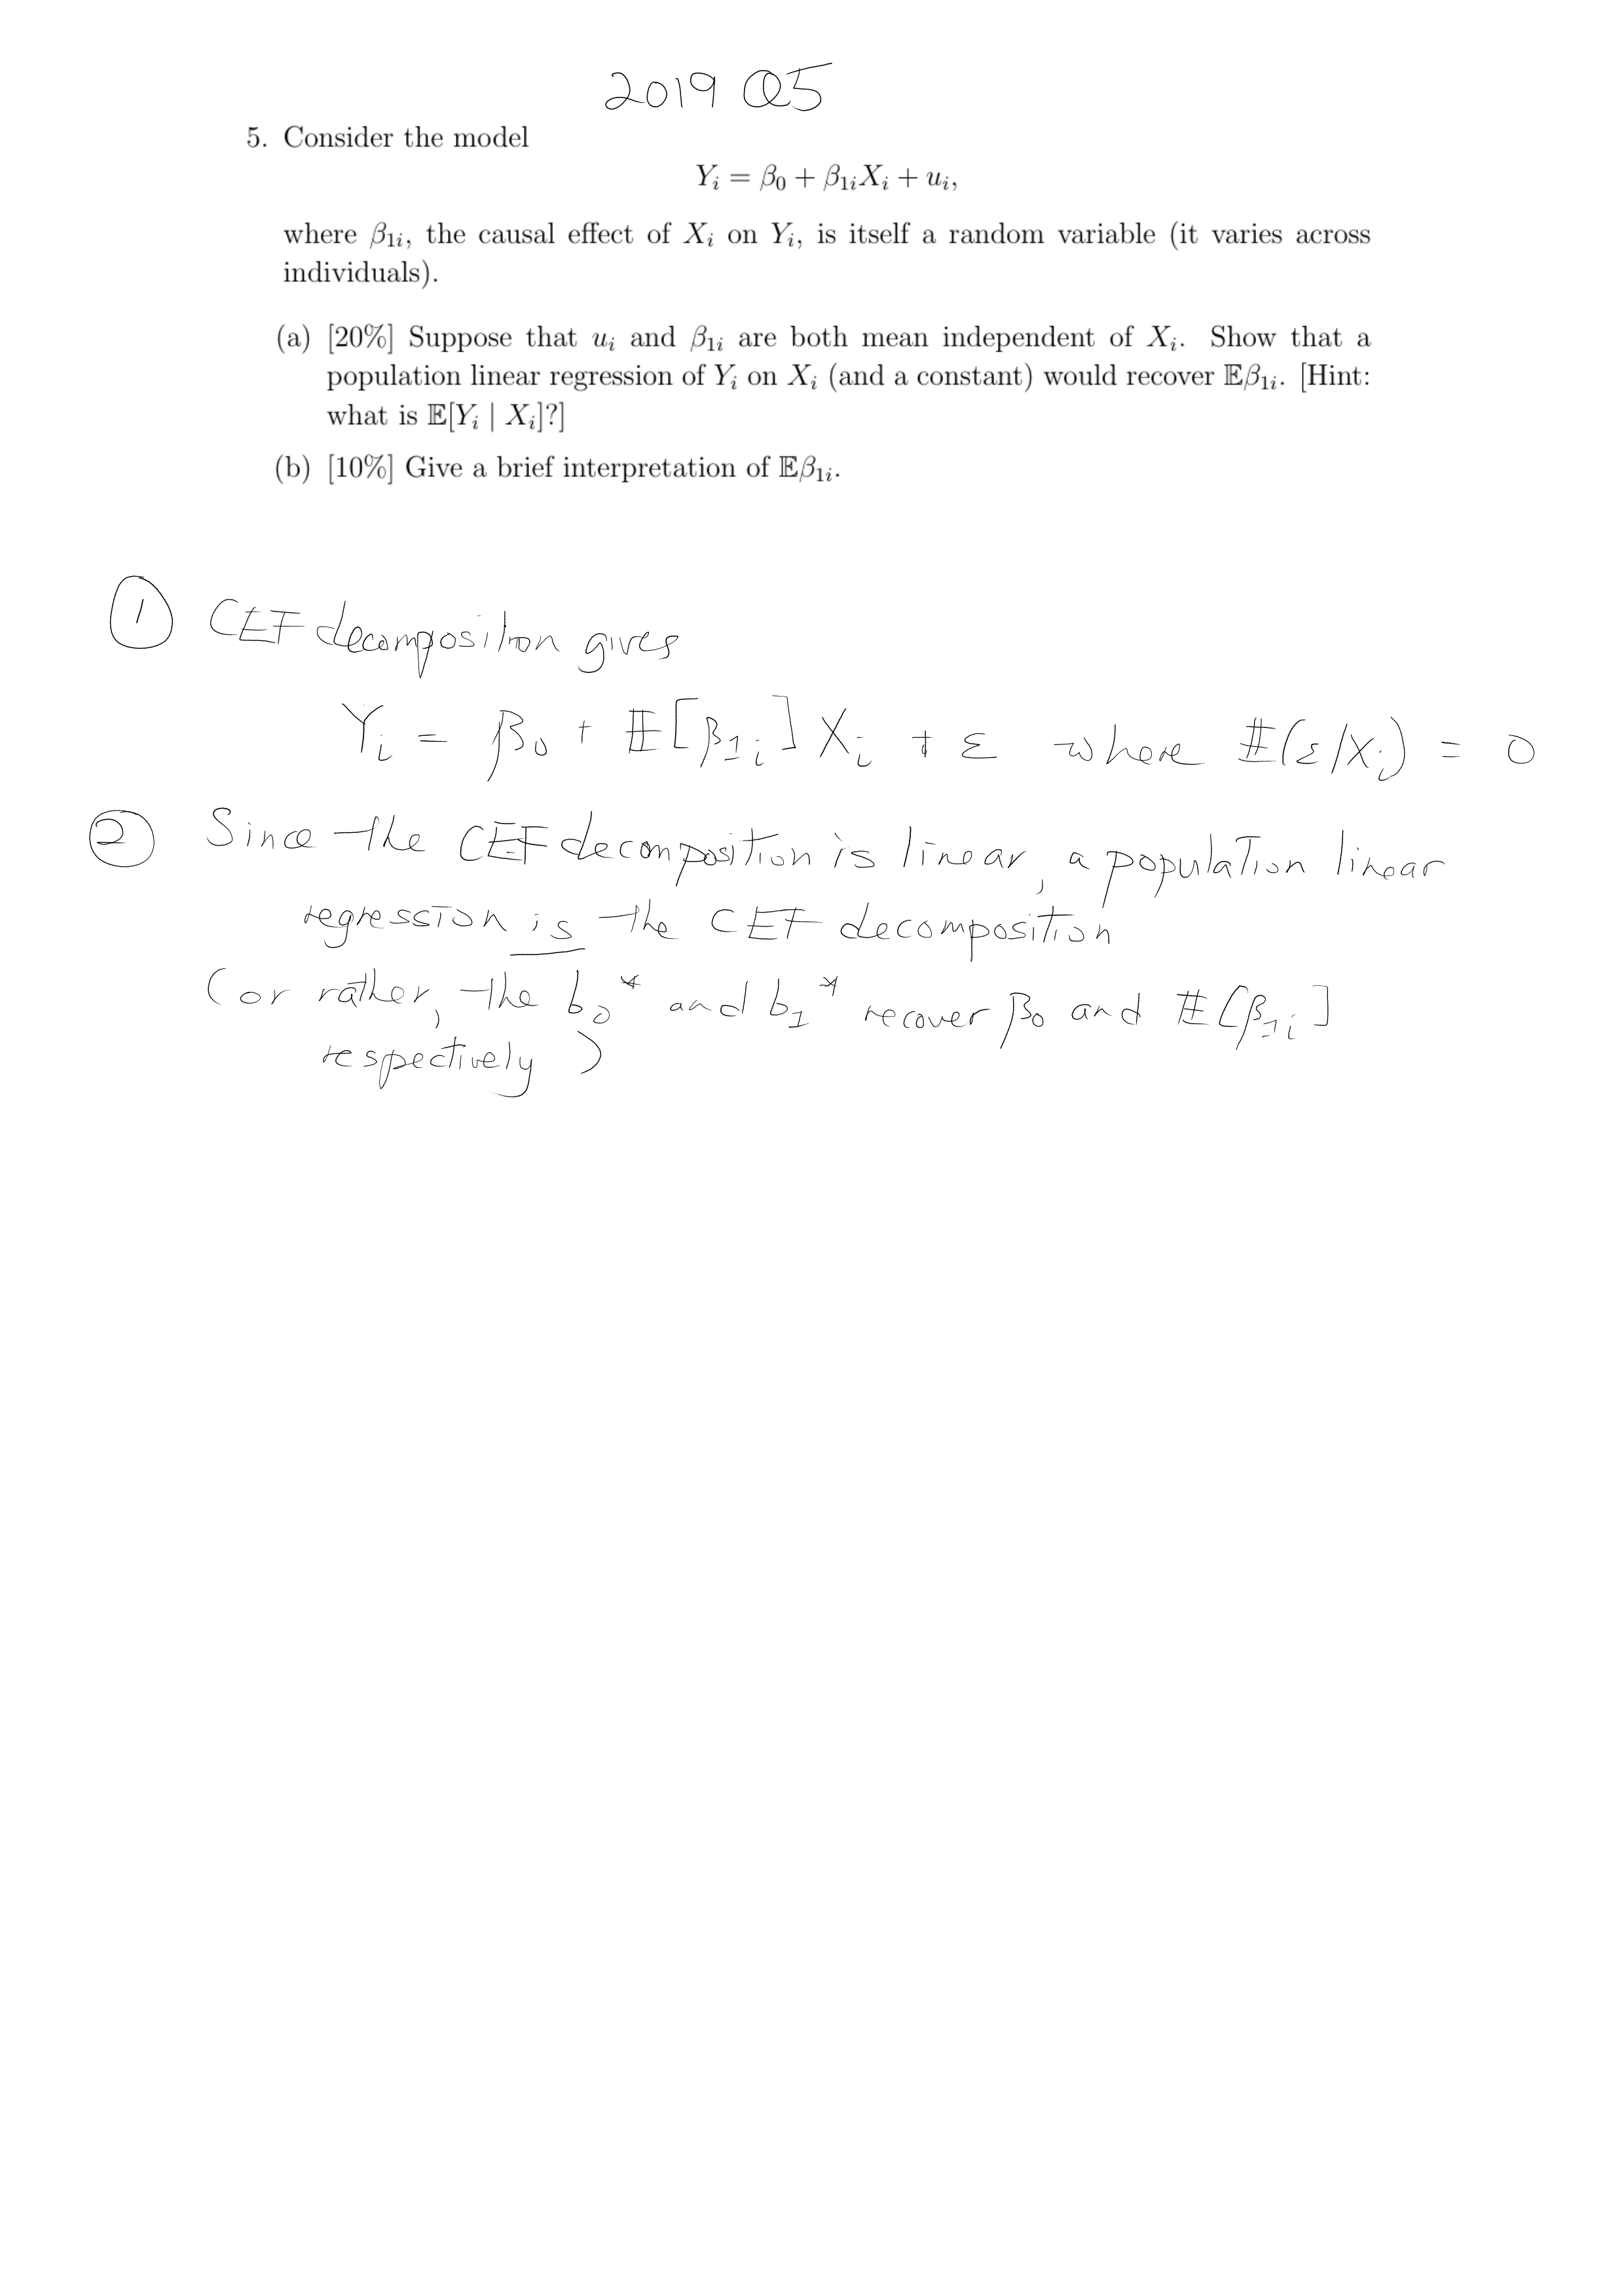 2019 Q5
5. Consider the model
Yᵢ = β₀ + β₁ᵢXᵢ + uᵢ,
where β₁ᵢ, the causal effect of Xᵢ on Yᵢ, is itself a random variable (it varies across
individuals).
(a) [20%] Suppose that uᵢ and β₁ᵢ are both mean independent of Xᵢ. Show that a
population linear regression of Yᵢ on Xᵢ (and a constant) would recover 𝔼β₁ᵢ. [Hint:
what is 𝔼[Yᵢ | Xᵢ]?]
(b) [10%] Give a brief interpretation of 𝔼β₁ᵢ.
① CEF decomposition gives
Yᵢ = β₀ + 𝔼[β₁ᵢ] Xᵢ + ε where 𝔼(ε|Xᵢ) = 0
② Since the CEF decomposition is linear, a population linear
regression is the CEF decomposition
(or rather, the b₀* and b₁* recover β₀ and 𝔼[β₁ᵢ]
respectively)